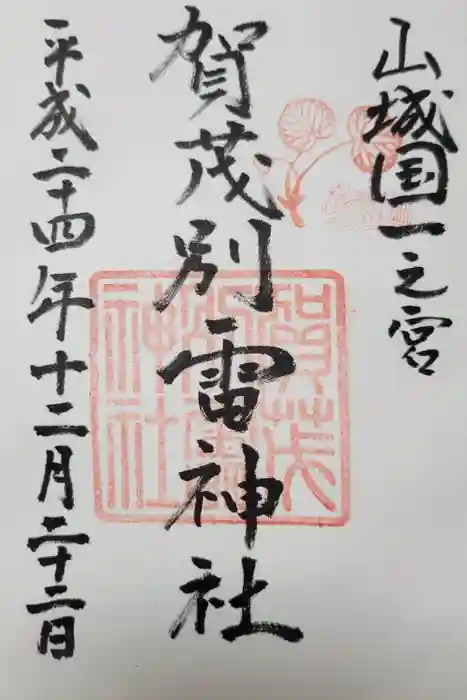 山城国一之宮
賀茂別雷神社
平成二十四年十二月二十二日
賀茂
別雷
神社